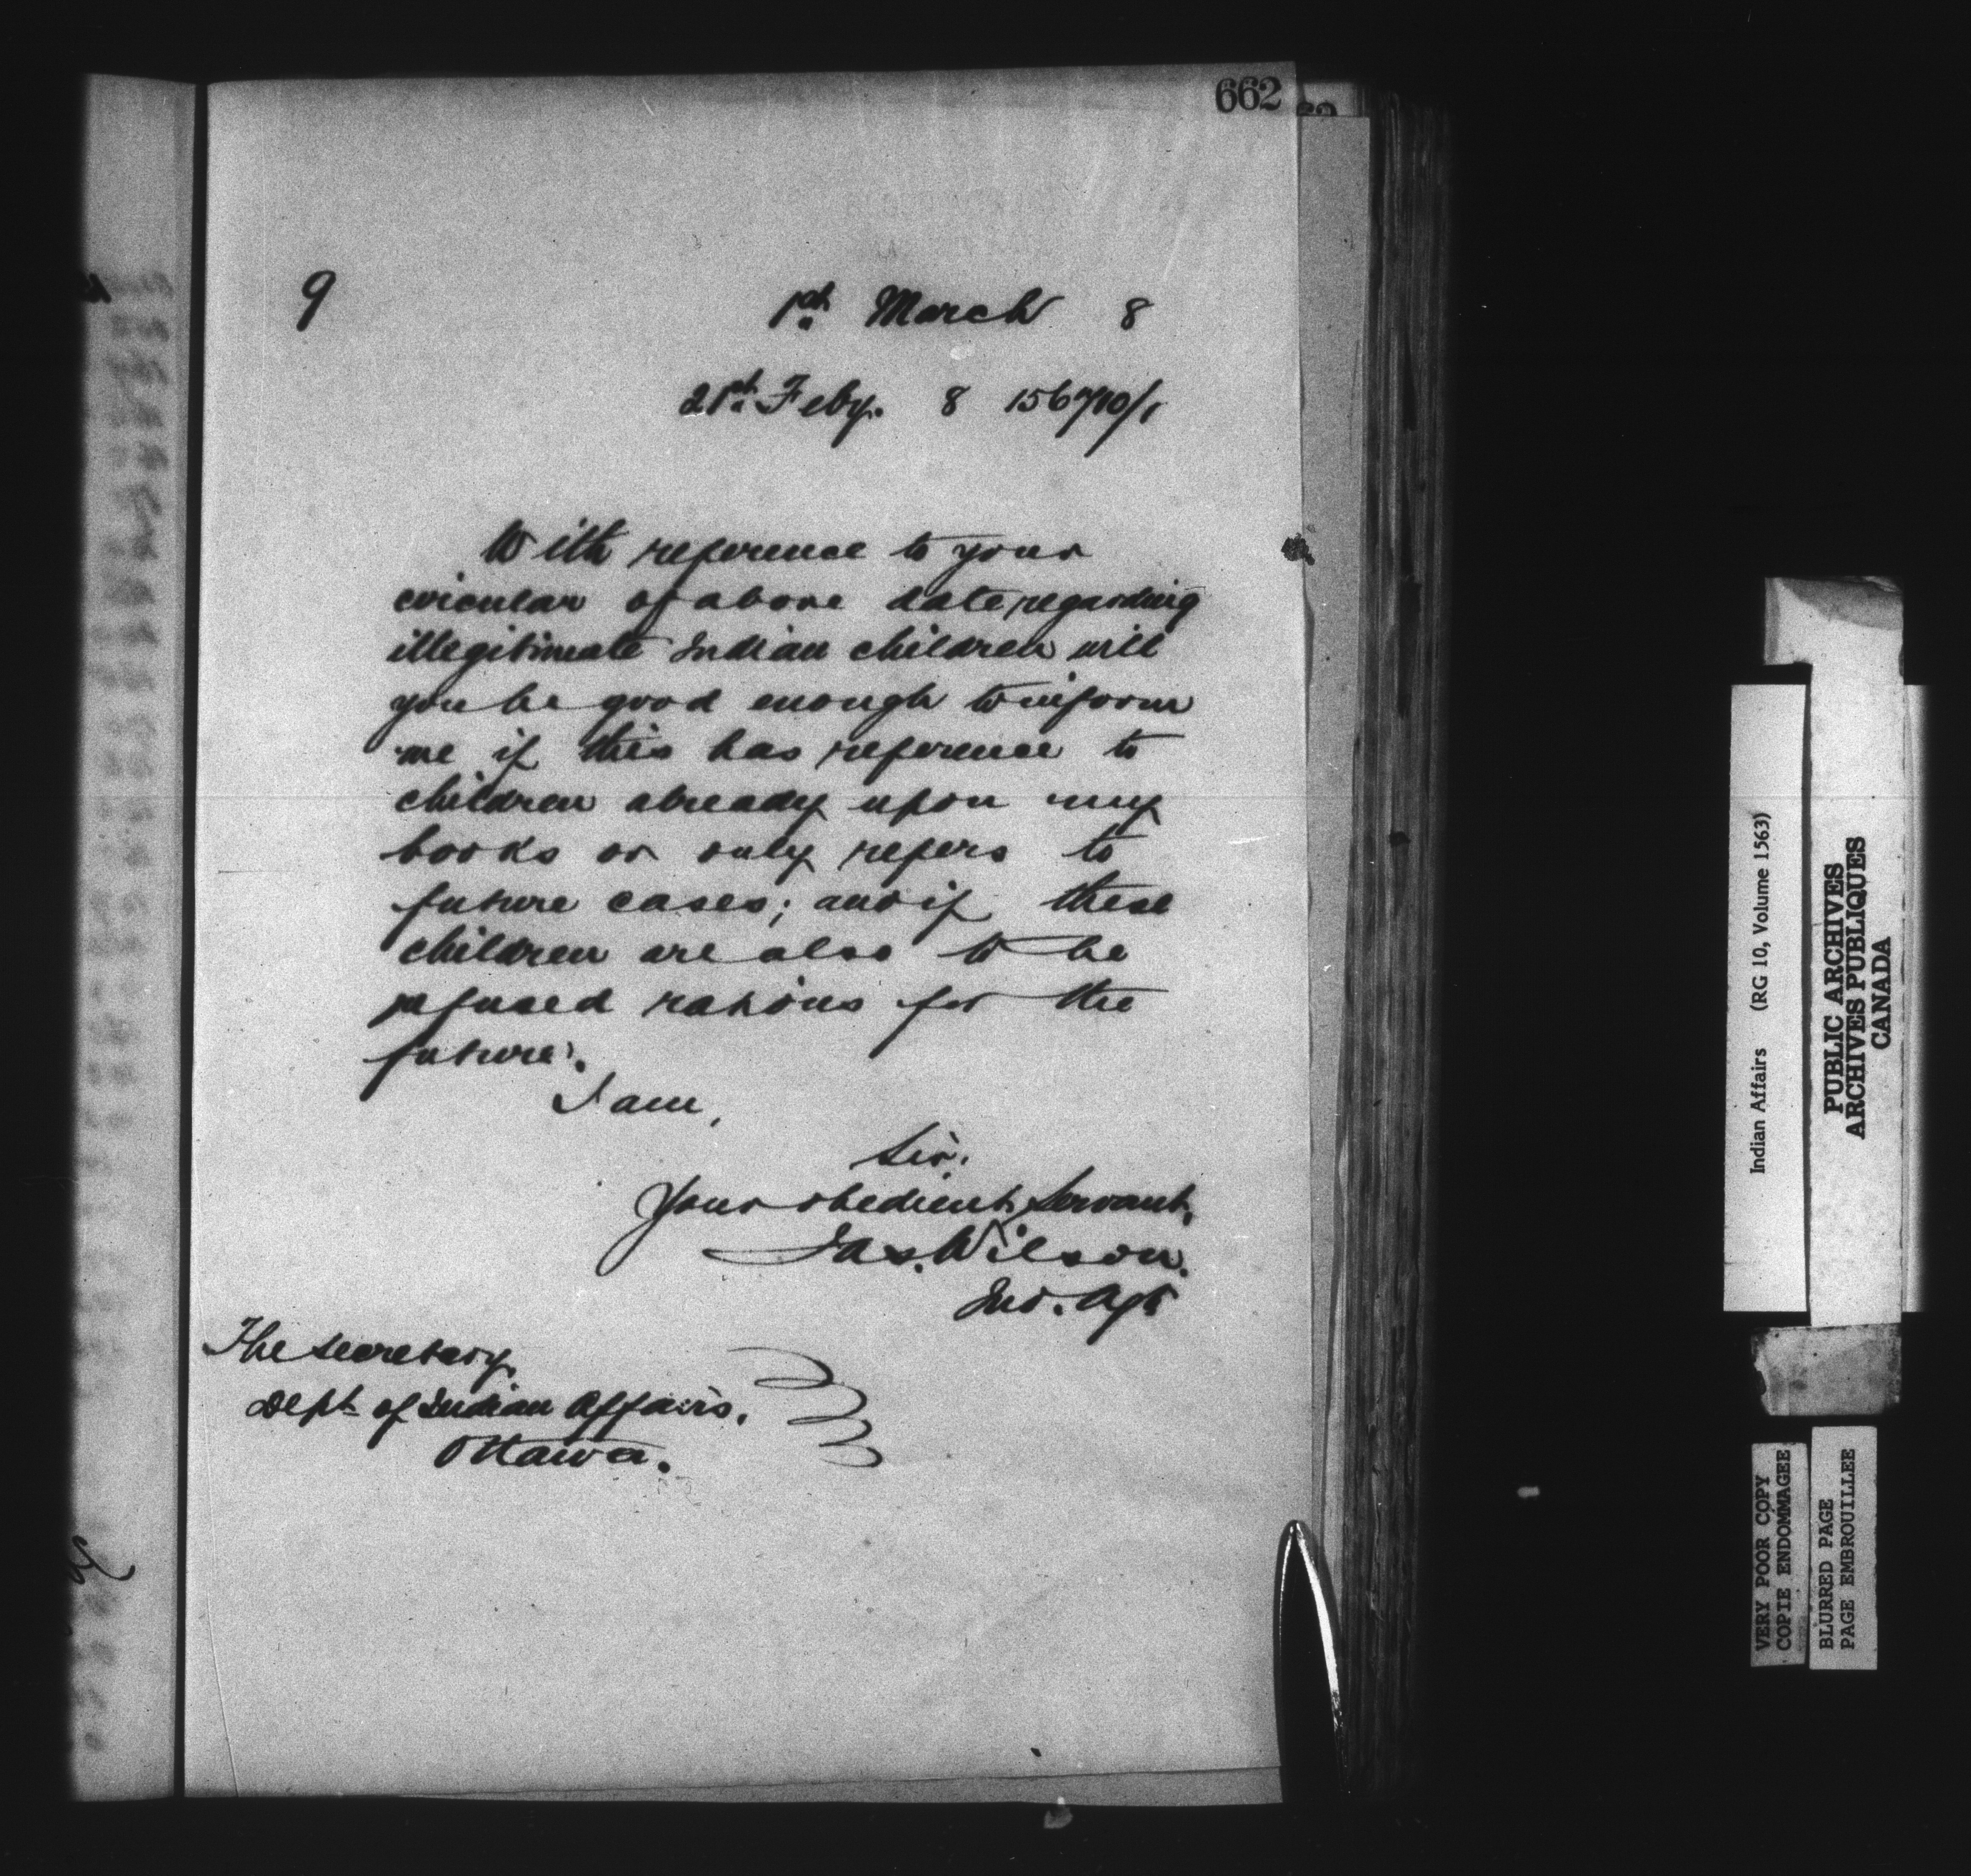 662
9
1st March 8
21st Feby. 8 156710/1
With reference to your
circular of above date, regarding
illegitimate Indian children will
you be good enough to inform
me if this has reference to
children already upon my
books or only refers to
future cases; and if these
children are also to be
refused rations for the
future.
I am,
Sir,
Your obedient Servant,
Jas. Wilson.
Ind. Agt
The Secretary,
Dept. of Indian Affairs,
Ottawa.
Indian Affairs (RG 10, Volume 1563)
PUBLIC ARCHIVES
ARCHIVES PUBLIQUES
CANADA
VERY POOR COPY
COPIE ENDOMMAGEE
BLURRED PAGE
PAGE EMBROUILLEE